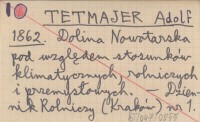 TETMAJER Adolf
1862. Dolina Nowotarska
pod względem stosunków
klimatycznych, rolniczych
i przemysłowych. — Dzien-
nik Rolniczy (Kraków) nr 1.